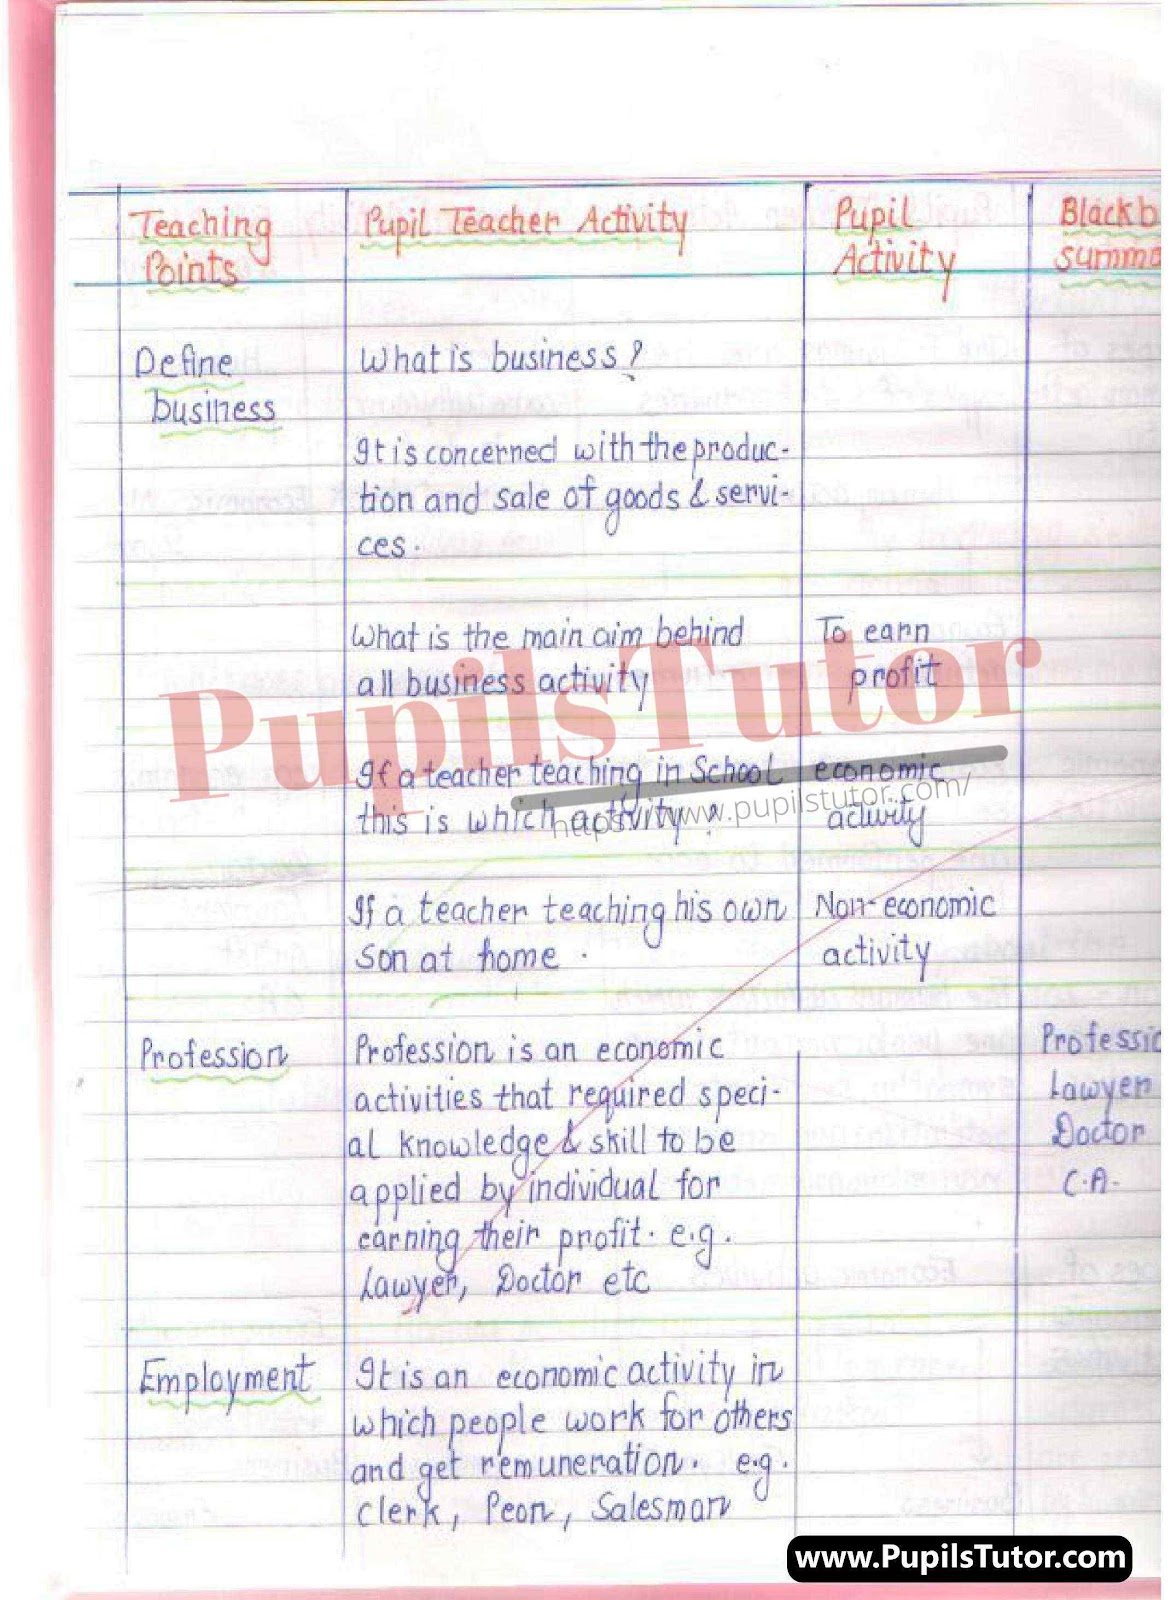 Teaching Points
Pupil Teacher Activity
Pupil Activity
Blackb
summa
Define business
What is business?
It is concerned with the produc-
tion and sale of goods & servi-
ces.
What is the main aim behind
all business activity
To earn
profit
If a teacher teaching in School
this is which activity?
economic
activity
If a teacher teaching his own
son at home.
Non-economic
activity
Profession
Profession is an economic
activities that required speci-
al knowledge & skill to be
applied by individual for
earning their profit. e.g.
Lawyer, Doctor etc
Professio
Lawyer
Doctor
C.A.
Employment
It is an economic activity in
which people work for others
and get remuneration. e.g.
clerk, Peon, Salesman
PupilsTutor
https://www.pupilstutor.com/
www.PupilsTutor.com